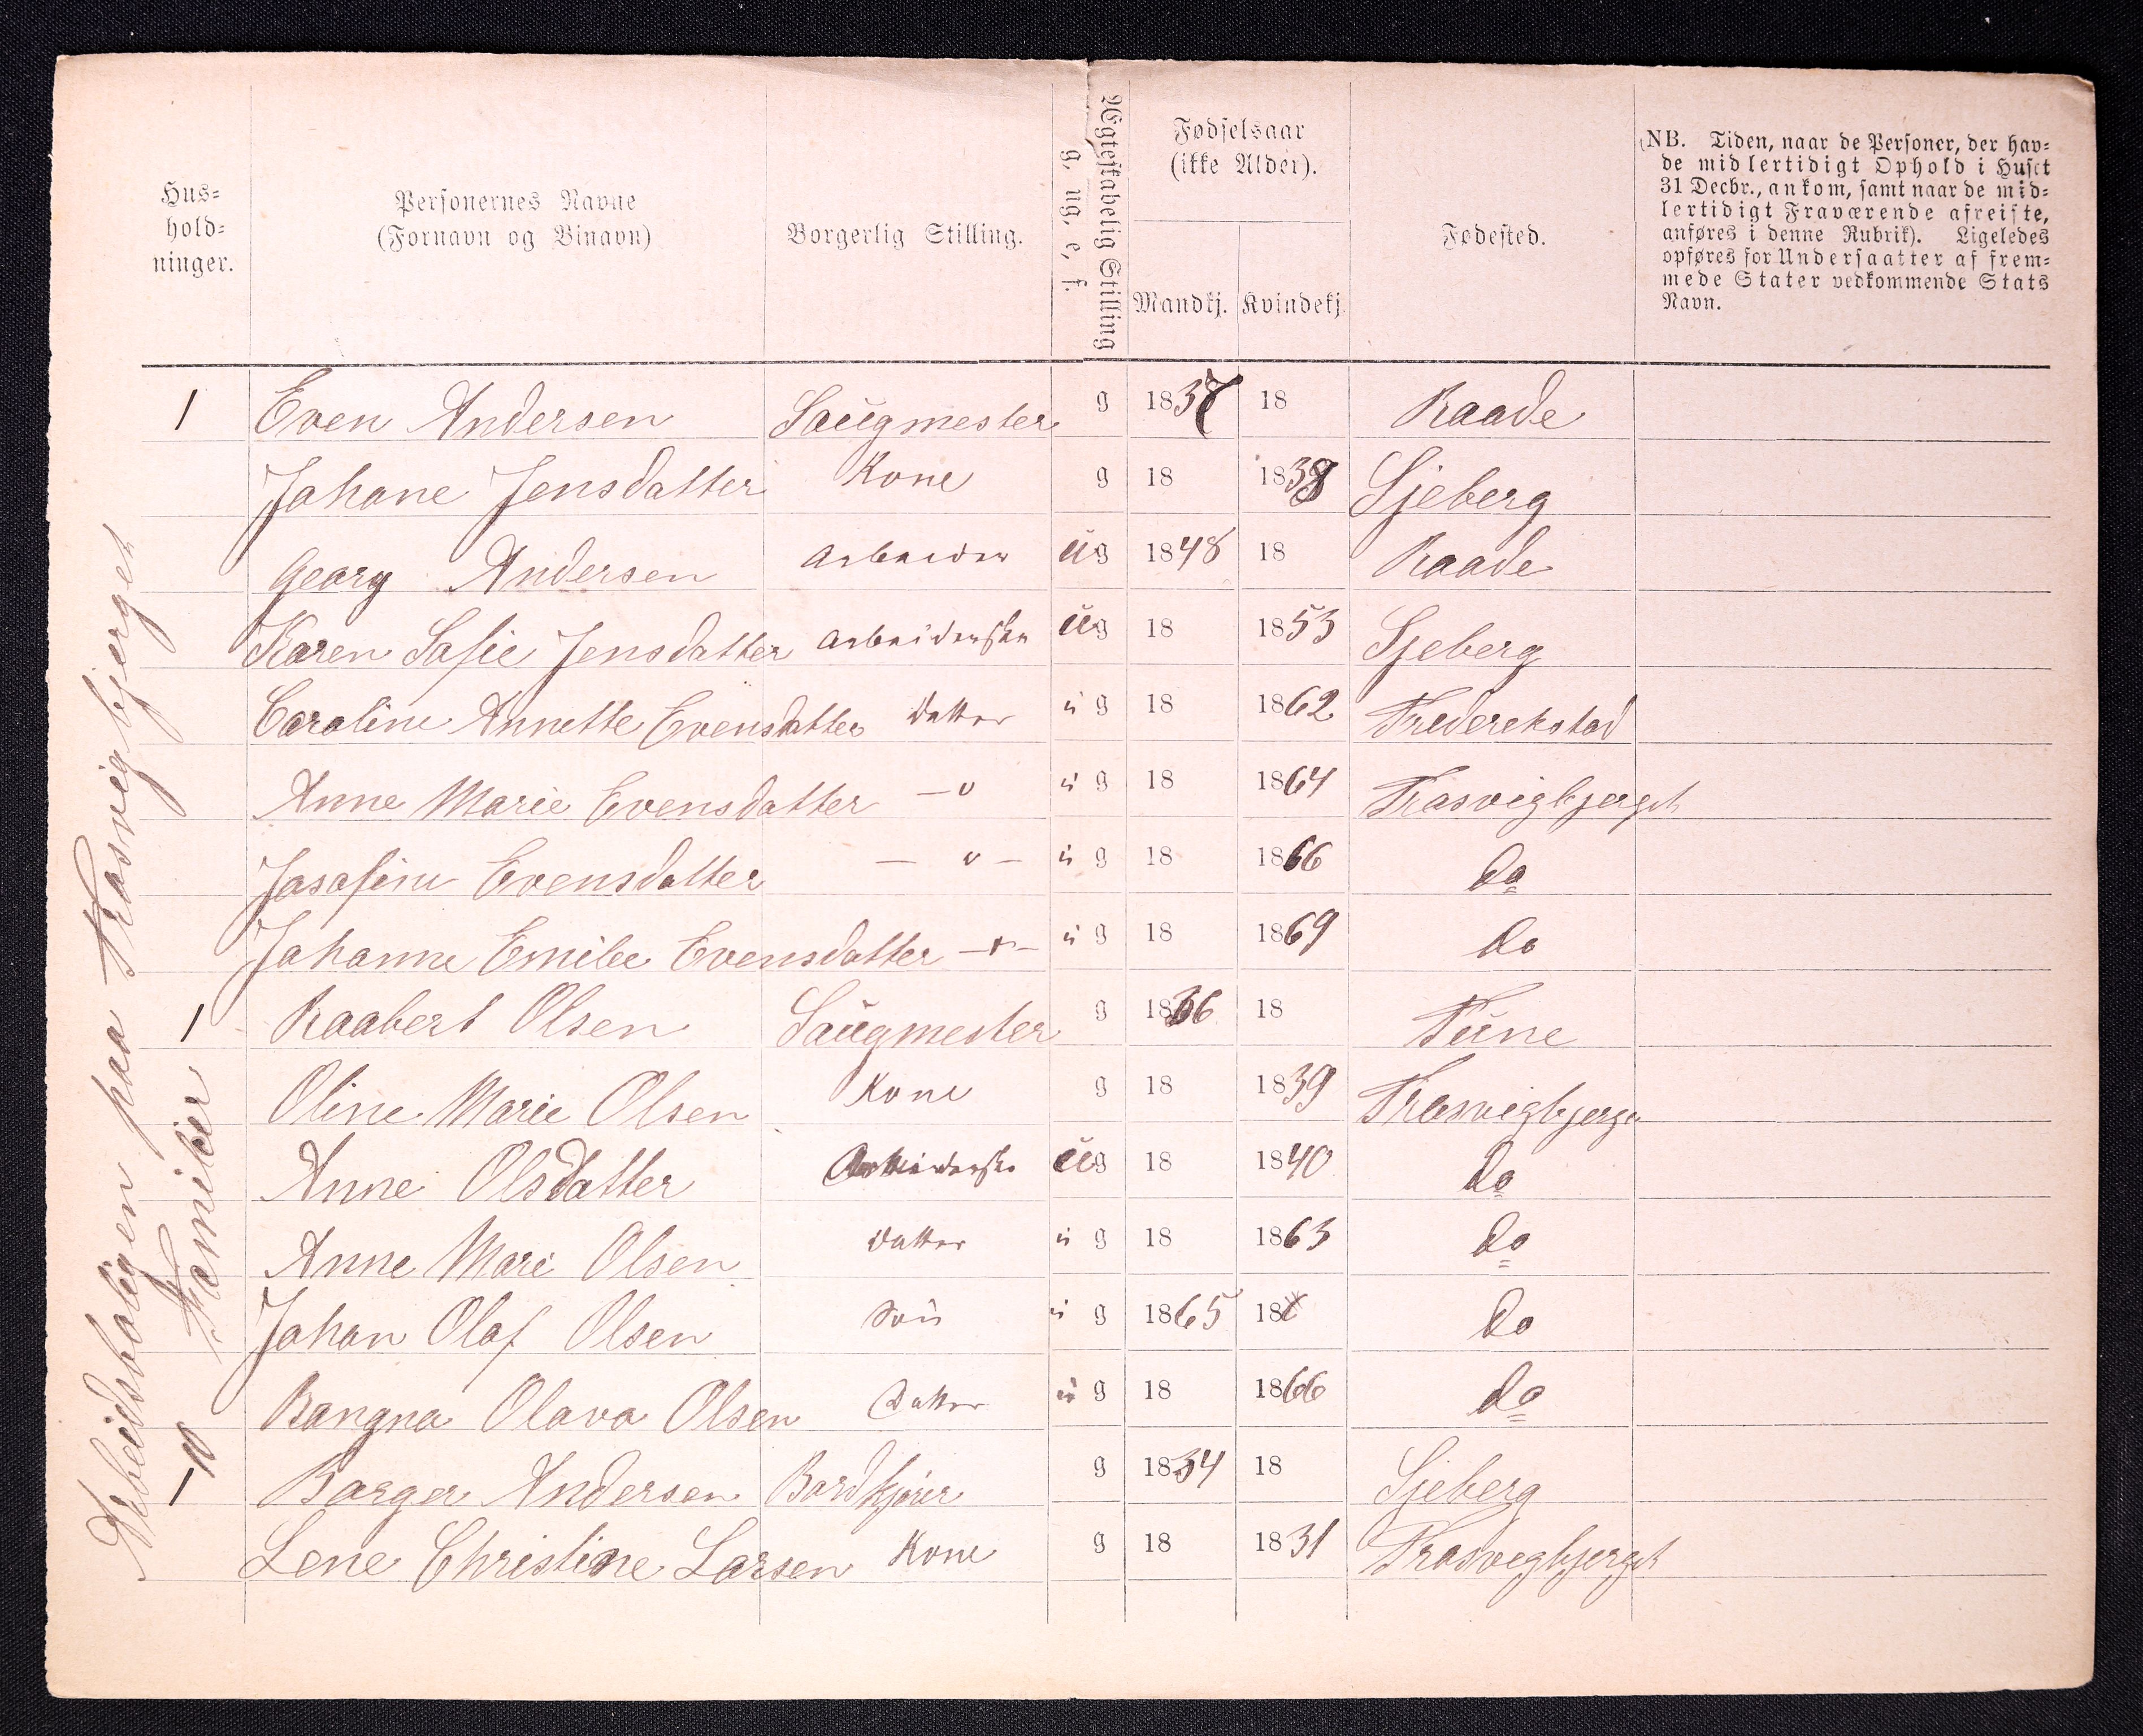 Hus-
hold-
ninger.
Personernes Navne
(Fornavn og Binavn)
Borgerlig Stilling.
Ægteskabelig Stilling
g, ug, e, f.
Fødselsaar
(ikke Alder).
Mandkj. Kvindekj.
Fødested.
(NB. Tiden, naar de Personer, der hav-
de midlertidigt Ophold i Huset
31 Decbr., ankom, samt naar de mid-
lertidigt Fraværende afreiste,
anføres i denne Rubrik). Ligeledes
opføres for Undersaatter af frem-
mede Stater vedkommende Stats
Navn.
1 Even Andersen Saugmester g 1837 18 Raade
Johane Jensdatter Kone g 18 1838 Sjeberg
Georg Andersen Arbeider ug 1848 18 Raade
Karen Sofie Jensdatter Arbeiderske ug 18 1853 Sjeberg
Caroline Annette Evensdatter Datter ug 18 1862 Frederekstad
Anne Marie Evensdatter —"— ug 18 1864 Trosvigbjerget
Josofine Evensdatter —"— ug 18 1866 do
Johanne Emilie Evensdatter —"— ug 18 1869 do
1 Raabert Olsen Saugmester g 1836 18 Tune
Oline Marie Olsen Kone g 18 1839 Trosvigbjerge
Anne Olsdatter Arbeiderske ug 18 1840 do
Anne Mari Olsen Datter ug 18 1863 do
Johan Olaf Olsen Søn ug 1865 18 do
Rangna Olava Olsen Datter ug 18 1866 do
1 Borger Andersen Bordkjører g 1834 18 Sjeberg
Lene Christine Larsen Kone g 18 1831 Trosvegbjerget
Arbeidsboligen paa Trosvigbjerget
10 Familier